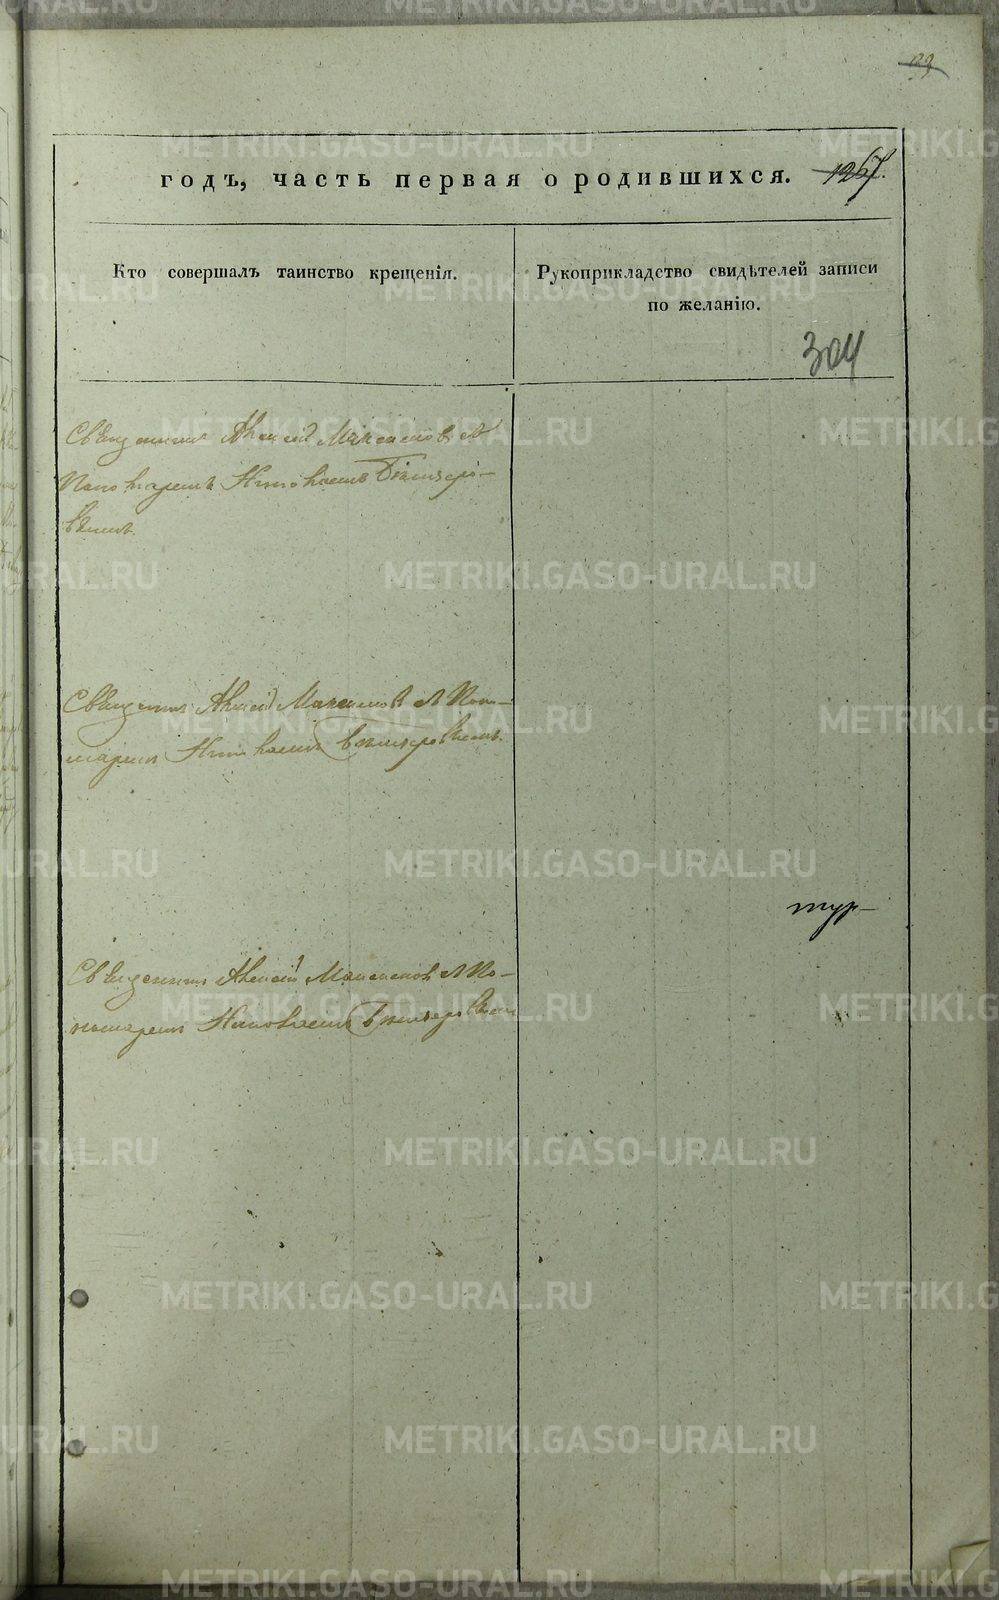 годъ, часть первая о родившихся. 1267.
Кто совершалъ таинство крещенія.
Рукоприкладство свидѣтелей записи
по желанію.
304
Священникъ Алексій Максимовъ А
Пономаремъ Николаемъ
Священникъ Алексій Максимовъ А Поно-
маремъ Николаемъ
тур-
Священникъ Алексій Максимовъ А По-
номаремъ Николаемъ
METRIKI.GASO-URAL.RU